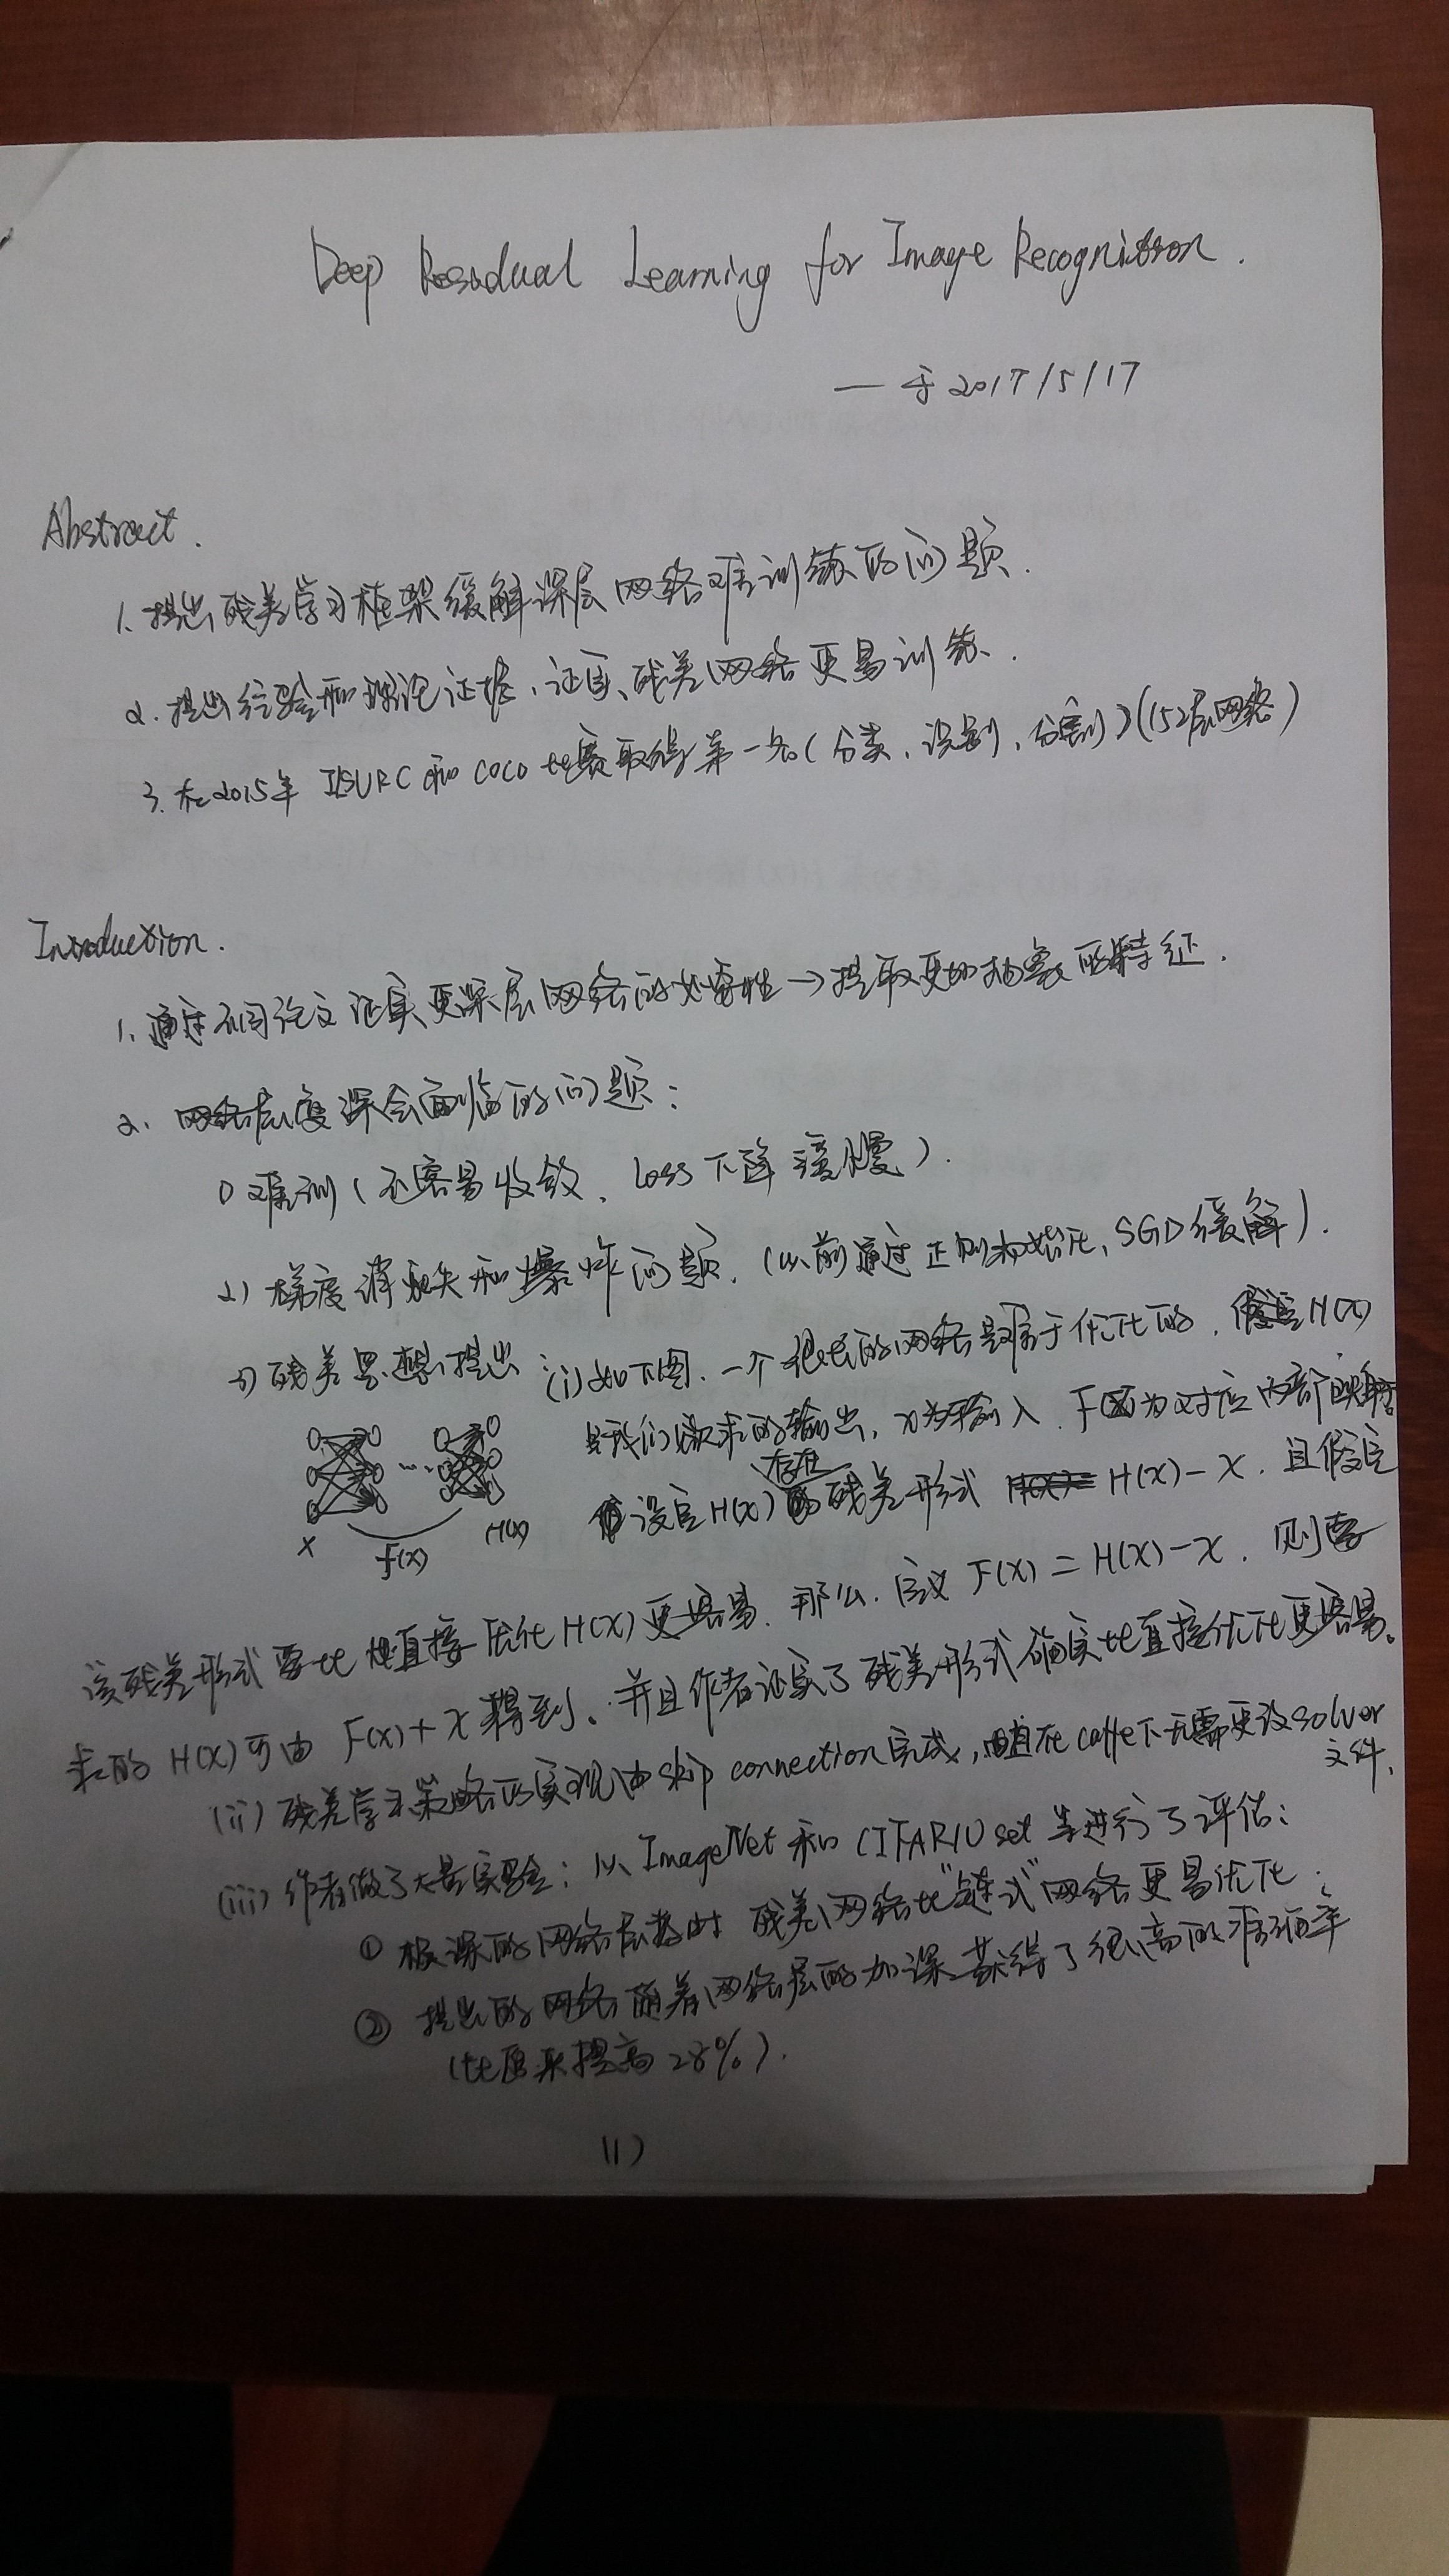 Deep Residual Learning for Image Recognition.
— 于 2017/5/17
Abstract.
1. 提出残差学习框架缓解深层网络难训练的问题.
2. 提出经验和理论证据,证实残差网络更易训练.
3. 在2015年 ILSVRC 和 COCO 比赛取得第一名(分类、识别、分割)(152层网络)
Introduction.
1. 通过不同论文证实更深层网络的必要性→提取更加抽象的特征.
2. 网络层度深会面临的问题:
1) 难训(不容易收敛、loss下降缓慢).
2) 梯度消失和爆炸问题.(以前通过正则初始化,SGD缓解).
3) 残差思想提出 (i) 如下图.一个很长的网络是难于优化的.假定H(x)
是我们欲求的输出,x为输入.F(x)为对应内部映射
设定H(x)存在残差形式 H(x)-x.且假定
X F(x) H(x)
该残差形式要比直接优化H(x)更容易.那么.定义 F(x)=H(x)-x.则要
求的 H(x)可由 F(x)+x 得到。并且作者证实了残差形式确实比直接优化更容易。
(ii) 残差学习策略的实现由skip connection完成,且在caffe下无需更改solver
文件.
(iii) 作者做了大量实验:以 ImageNet 和 CIFAR10 set 等进行了评估:
① 极深的网络层数时 残差网络比"链式"网络更易优化.
② 提出的网络随着网络层的加深获得了很高的准确率
(比原来提高28%).
(1)